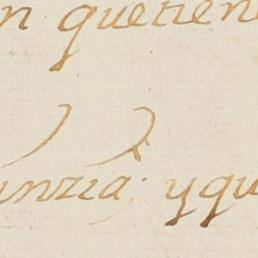 n quetiene
unzia: yqu